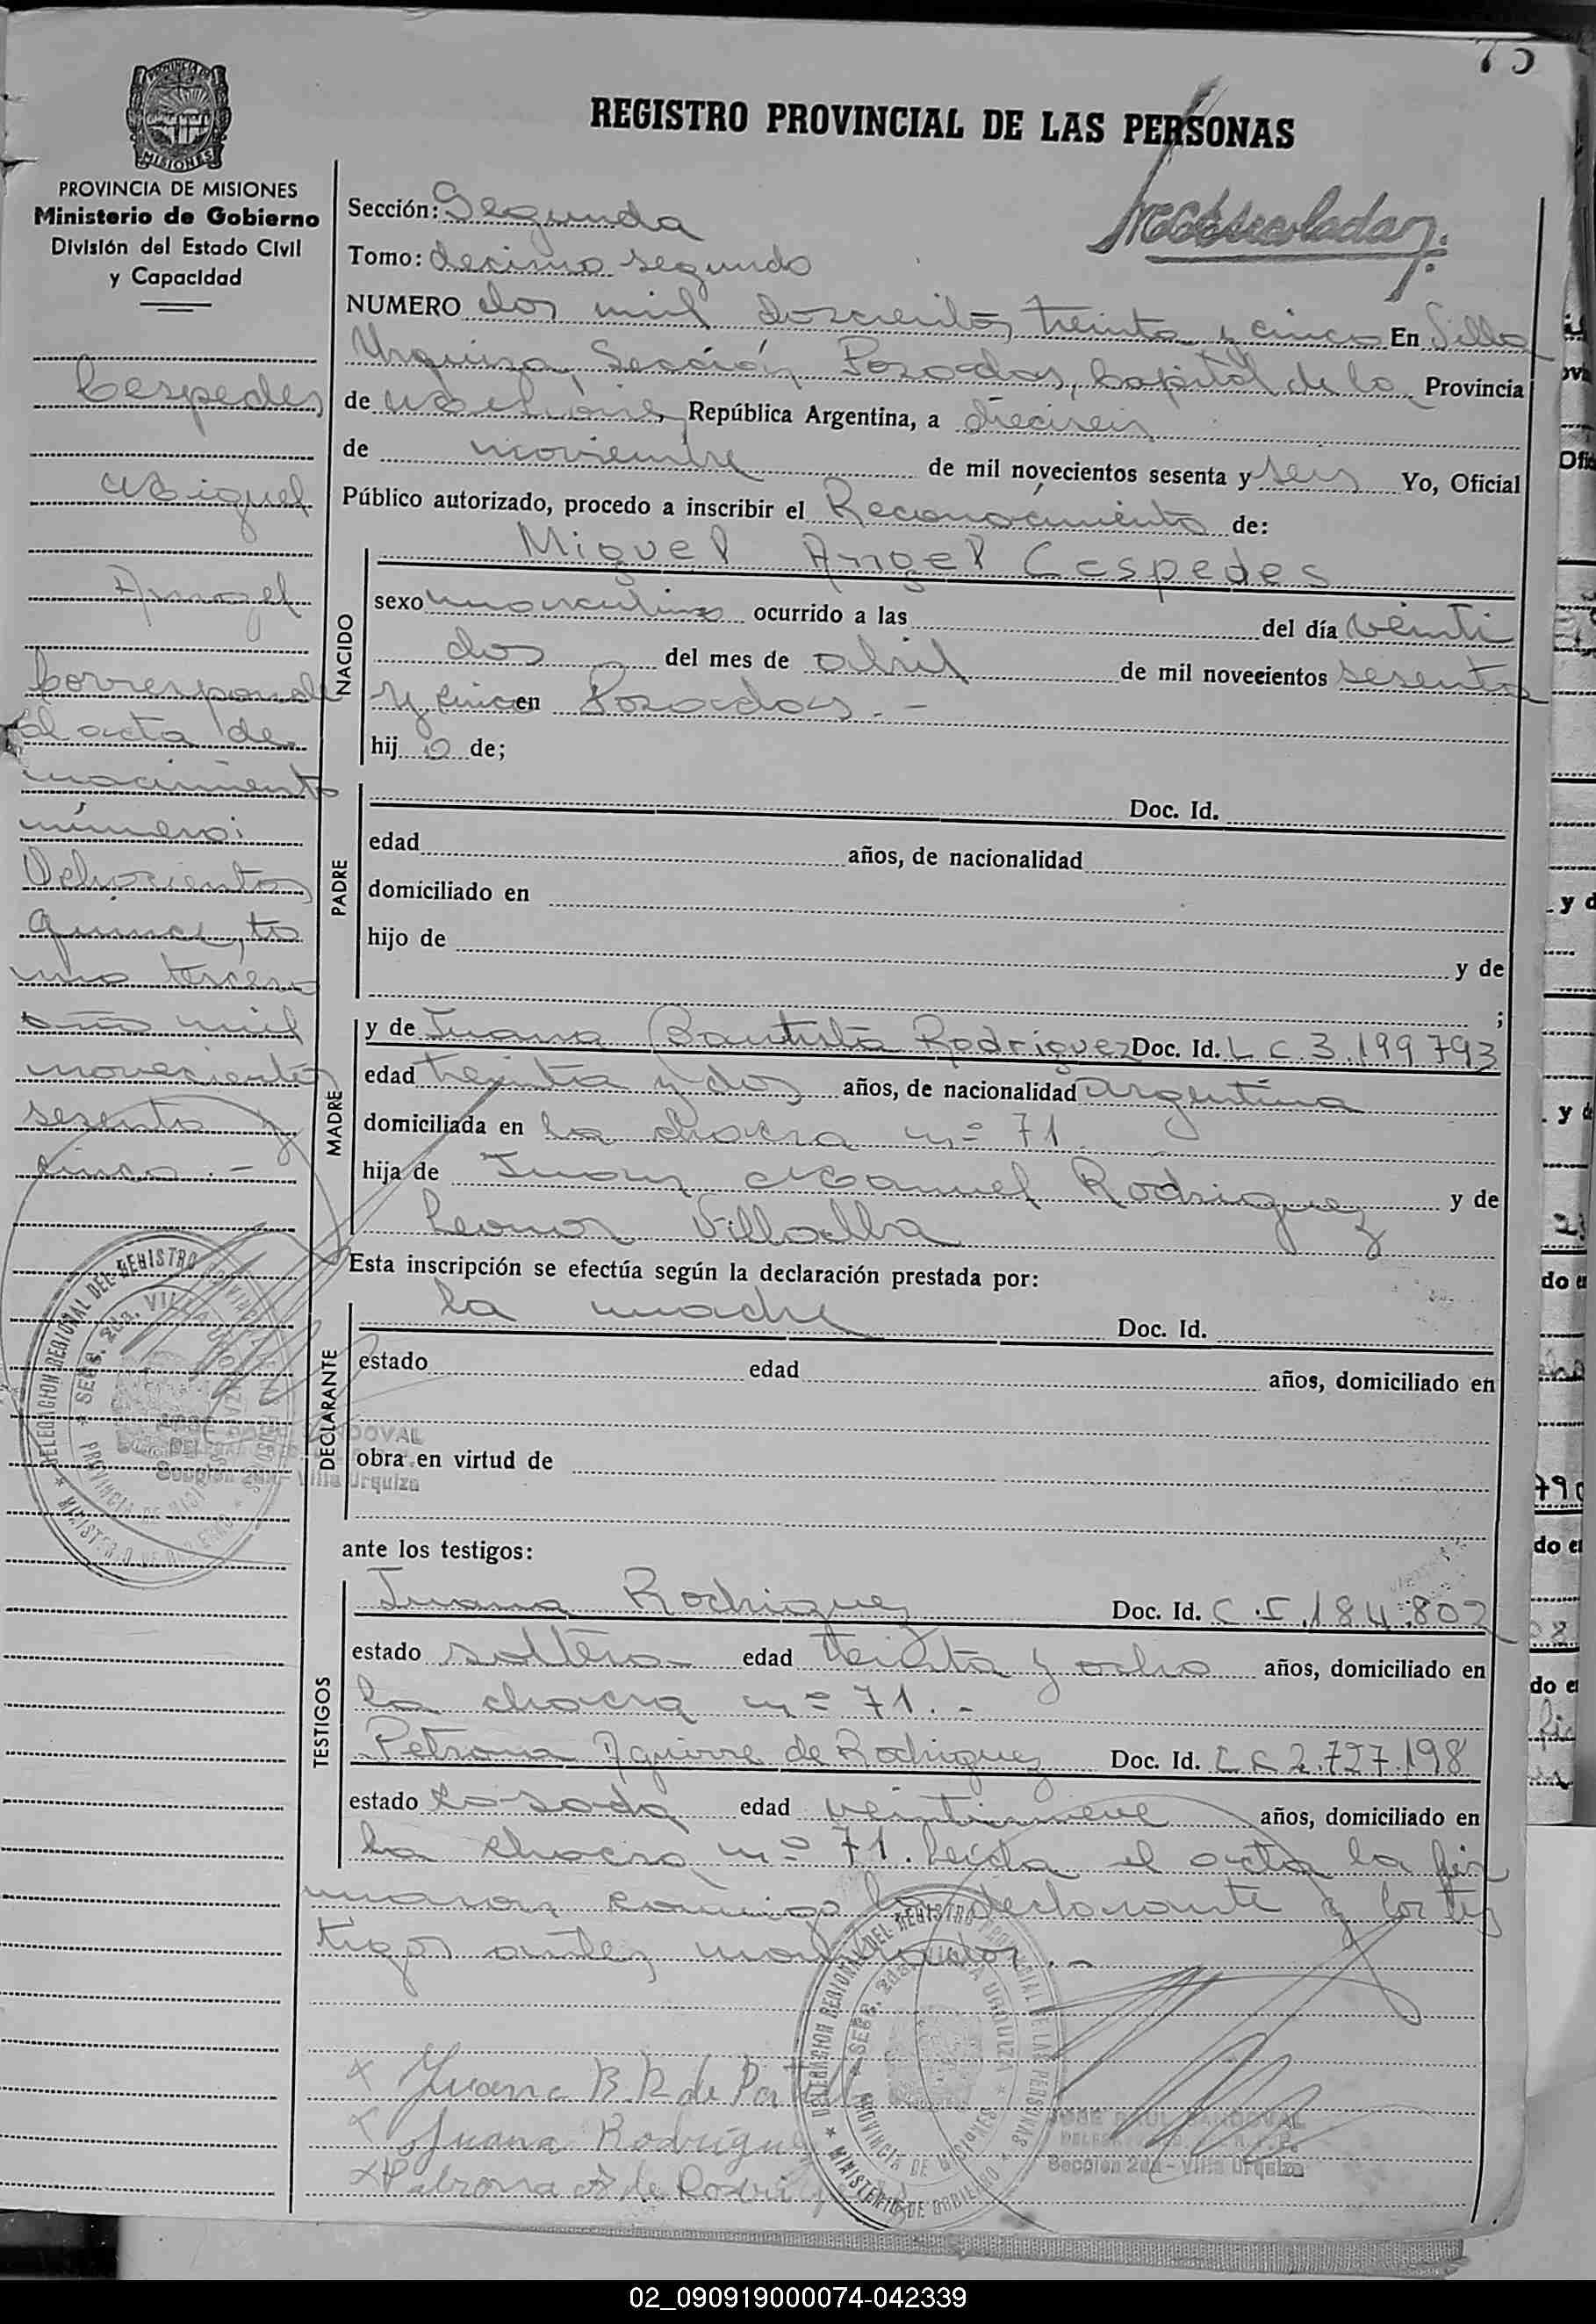 75
REGISTRO PROVINCIAL DE LAS PERSONAS
PROVINCIA DE MISIONES
Ministerio de Gobierno
División del Estado Civil
y Capacidad
Cespedes
Miguel
Angel
Corresponde
al acta de
nacimiento
número:
Ochocientos
quince, to
mo tercero
año mil
novecientos
sesenta y
cinco.-
Sección: Segunda
Tomo: decimo segundo
NUMERO dos mil doscientos treinta y cinco En Villa
Urquiza, Sección Posadas, Capital de la Provincia
de Misiones, República Argentina, a dieciseis
de noviembre de mil novecientos sesenta y seis Yo, Oficial
Público autorizado, procedo a inscribir el Reconocimiento de:
NACIDO
Miguel Angel Cespedes
sexo masculino ocurrido a las del día veinti
dos del mes de abril de mil novecientos sesenta
y cinco en Posadas.-
hijo de;
PADRE
Doc. Id.
edad años, de nacionalidad
domiciliado en
hijo de y de
;
MADRE
y de Juana Bautista Rodriguez Doc. Id. L C 3.199.793
edad treinta y dos años, de nacionalidad argentina
domiciliada en la chacra nº 71
hija de Juan Manuel Rodriguez y de
Leonor Villalba
Esta inscripción se efectúa según la declaración prestada por:
DECLARANTE
la madre Doc. Id.
estado edad años, domiciliado en
obra en virtud de
ante los testigos:
TESTIGOS
Juana Rodriguez Doc. Id. C.I. 184.802
estado soltera edad treinta y ocho años, domiciliado en
la chacra nº 71.-
Petrona Aguirre de Rodriguez Doc. Id. L C 2.727.198
estado casada edad veintinueve años, domiciliado en
la chacra nº 71. Leida el acta la fir
maron conmigo la declarante y los tes
tigos antes
Juana B. R. de
Juana Rodrigue
Petrona A de Rodriguez
DELEGACION REGIONAL DEL REGISTRO PROVINCIAL DE LAS PERSONAS
SECC. 2da. VILLA URQUIZA
PROVINCIA DE MISIONES
MINISTERIO DE GOBIERNO
JOSE RAUL SANDOVAL
Sección 2da - Villa Urquiza
02_090919000074-042339